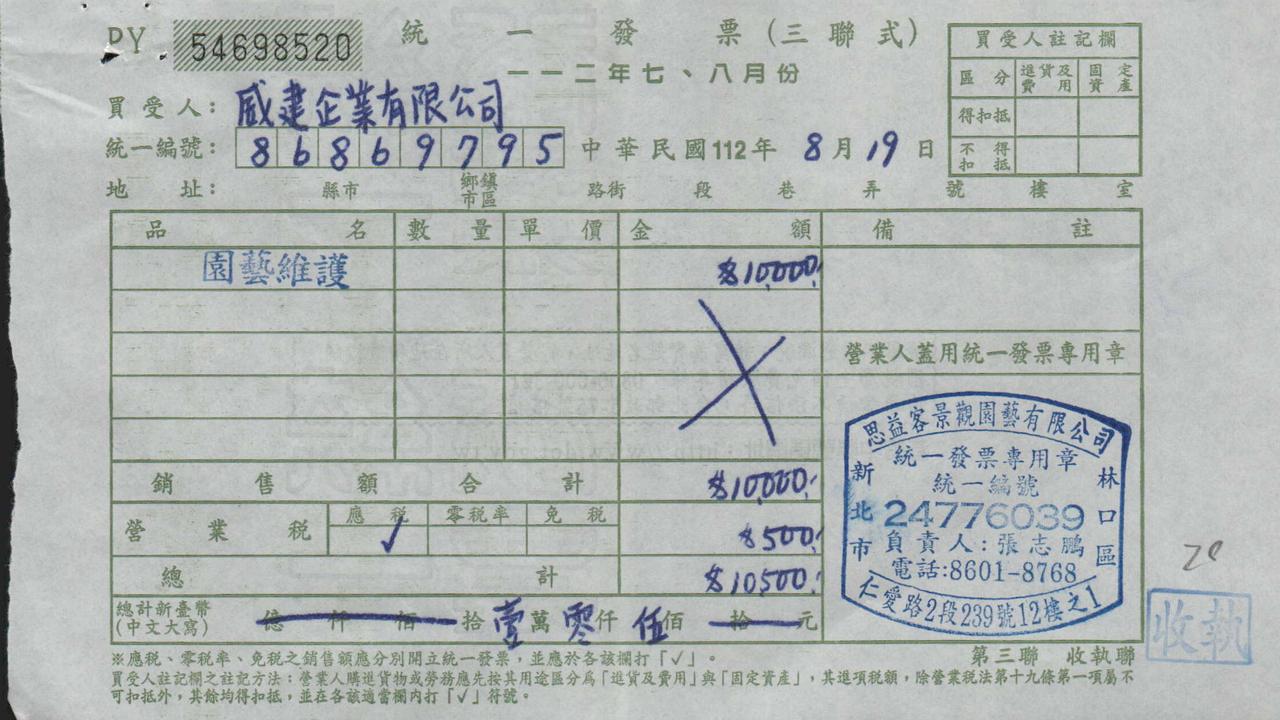 PY 54698520 統一發票(三聯式)
一一二年七、八月份
買受人註記欄
區分 進貨及費用 固定資產
得扣抵
不得扣抵
買受人: 威建企業有限公司
統一編號: 86869795 中華民國112年 8月19日
地址: 縣市 鄉鎮市區 路街 段 巷 弄 號 樓 室
品名 數量 單價 金額 備註
園藝維護 $10,000.
營業人蓋用統一發票專用章
銷售額合計 $10,000.
營業稅 應稅 ✓ 零稅率 免稅 $500.
總計 $10,500.
總計新臺幣(中文大寫) 億仟佰拾壹萬零仟伍佰拾元
思益客景觀園藝有限公司
統一發票專用章
統一編號
24776039
負責人:張志鵬
電話:8601-8768
新北市林口區
仁愛路2段239號12樓之1
收執
第三聯 收執聯
※應稅、零稅率、免稅之銷售額應分別開立統一發票,並應於各該欄打「✓」。
買受人註記欄之註記方法:營業人購進貨物或勞務應先按其用途區分為「進貨及費用」與「固定資產」,其進項稅額,除營業稅法第十九條第一項屬不
可扣抵外,其餘均得扣抵,並在各該適當欄內打「✓」符號。